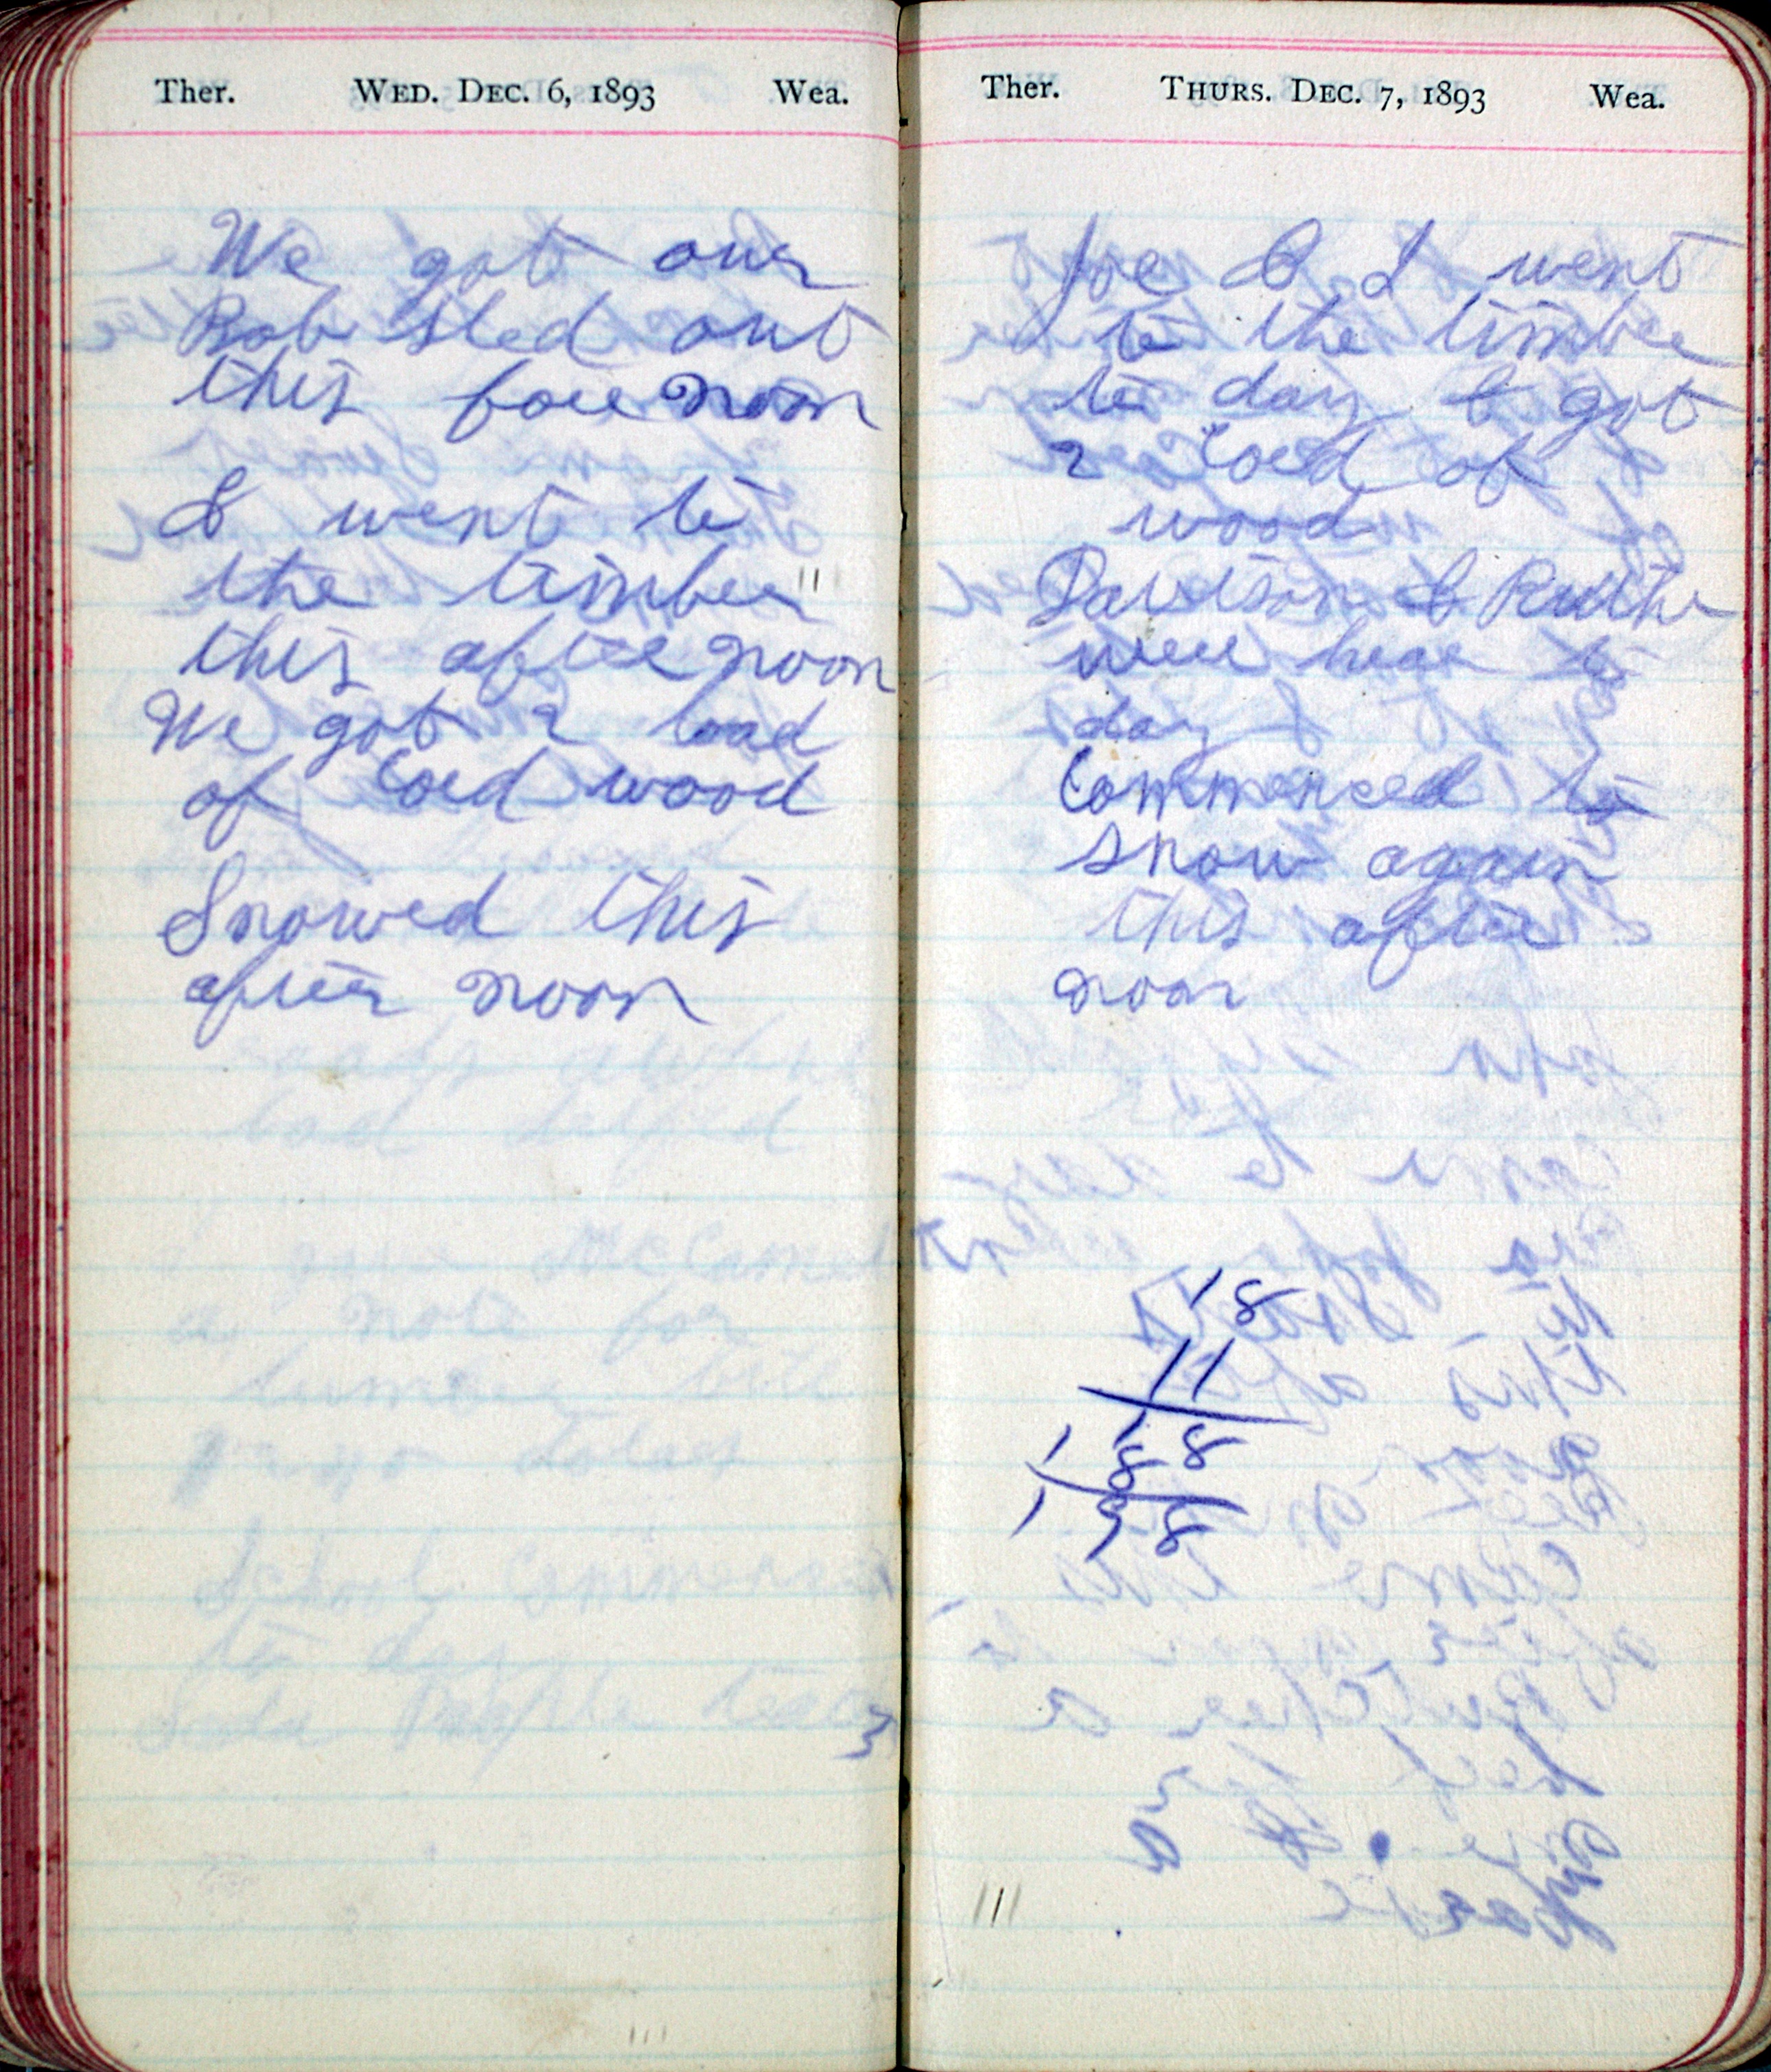 Ther. WED. DEC. 6, 1893 Wea.
We got our
Bob sled out
this fore noon
I went to
the timber
this after noon
We got 2 load
of Cord wood
Snowed this
after noon
Ther. THURS. DEC. 7, 1893 Wea.
Joe & I went
to the timber
to day & got
2 Cord of
wood
Davidson & Ruth
were hear to
day
Commenced to
snow again
this after
noon
18
11
1 8
1 8
1 9 8